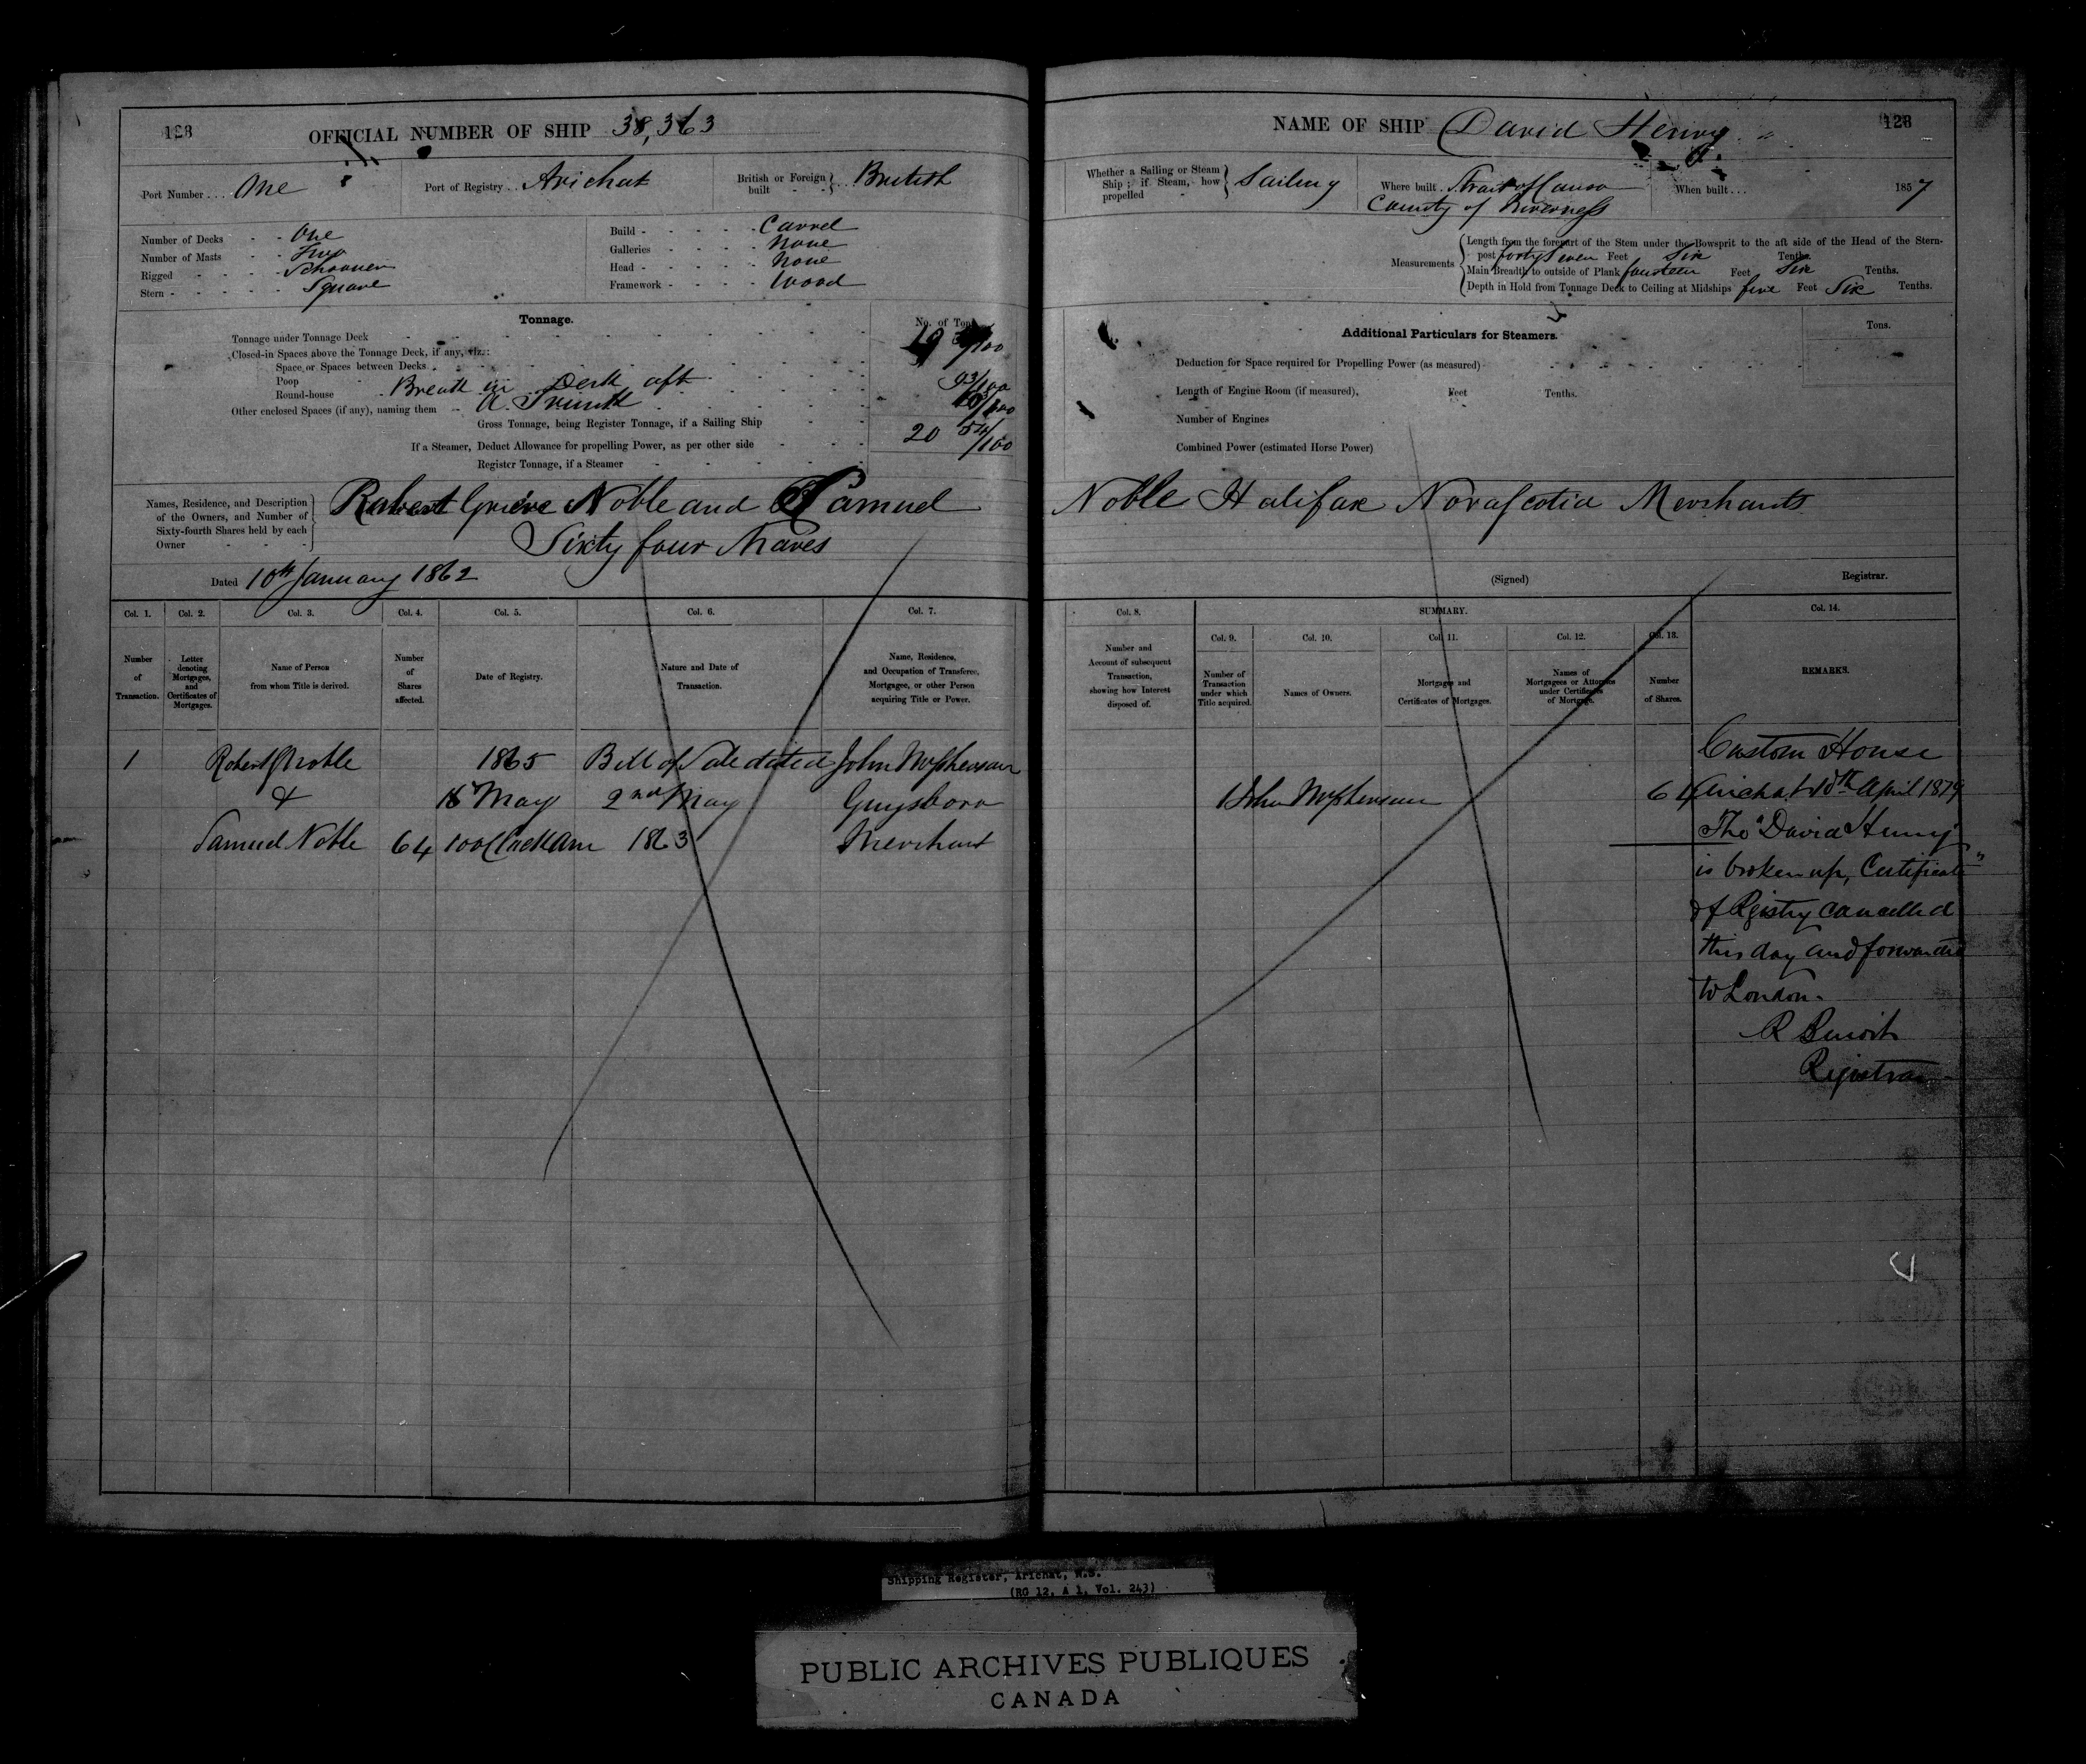 128
OFFICIAL NUMBER OF SHIP 38,363
Port Number ... One
Port of Registry ... Arichat
British or Foreign built - - } ... British
Number of Decks - - One
Number of Masts - - Two
Rigged - - - - Schooner
Stern - - - - - Square
Build - - - - - Carvel
Galleries - - - - None
Head - - - - - None
Framework - - - - Wood
Tonnage.
No. of Tons
Tonnage under Tonnage Deck 19 /100
Closed-in Spaces above the Tonnage Deck, if any, viz.:
Space or Spaces between Decks
Poop
Round-house Break in Deck aft 93/100
Other enclosed Spaces (if any), naming them A Trunk /100
Gross Tonnage, being Register Tonnage, if a Sailing Ship 20 54/100
If a Steamer, Deduct Allowance for propelling Power, as per other side
Register Tonnage, if a Steamer
Names, Residence, and Description of the Owners, and Number of Sixty-fourth Shares held by each Owner
Robert Grieve Noble and Samuel
Sixty four Shares
Dated 10th January 1862
Col. 1. Col. 2. Col. 3. Col. 4. Col. 5. Col. 6. Col. 7.
Number of Transaction.
Letter denoting Mortgages, and Certificates of Mortgages.
Name of Person from whom Title is derived.
Number of Shares affected.
Date of Registry.
Nature and Date of Transaction.
Name, Residence, and Occupation of Transferee, Mortgagee, or other Person acquiring Title or Power.
1 Robert G Noble 1865 Bill of Sale dated John McPherson
& May 2nd May Guysboro
Samuel Noble 64 10 o'Clock am 1863 Merchant
NAME OF SHIP David Henry
128
Whether a Sailing or Steam Ship; if Steam, how propelled - } Sailing
Where built . Strait of Canso
County of Inverness
When built ... 1857
Measurements
Length from the forepart of the Stem under the Bowsprit to the aft side of the Head of the Stern-
post forty Seven Feet Six Tenths.
Main Breadth to outside of Plank fourteen Feet Six Tenths.
Depth in Hold from Tonnage Deck to Ceiling at Midships five Feet Six Tenths.
Additional Particulars for Steamers.
Tons.
Deduction for Space required for Propelling Power (as measured)
Length of Engine Room (if measured), Feet Tenths.
Number of Engines
Combined Power (estimated Horse Power)
Noble Halifax Nova Scotia Merchants
(Signed) Registrar.
Col. 8. SUMMARY. Col. 14.
Col. 9. Col. 10. Col. 11. Col. 12. Col. 13.
Number and Account of subsequent Transaction, showing how Interest disposed of.
Number of Transaction under which Title acquired.
Names of Owners.
Mortgages and Certificates of Mortgages.
Names of Mortgagees or Attornies under Certificates of Mortgage.
Number of Shares.
REMARKS.
1 John McPherson 64
Custom House
Arichat 18th April 1879
The "David Henry"
is broken up, Certificate
of Registry cancelled
this day and forwarded
to London.
R Benoit
Registrar
Shipping Register, Arichat, N.S.
(RG 12, A 1, Vol. 243)
PUBLIC ARCHIVES PUBLIQUES
CANADA